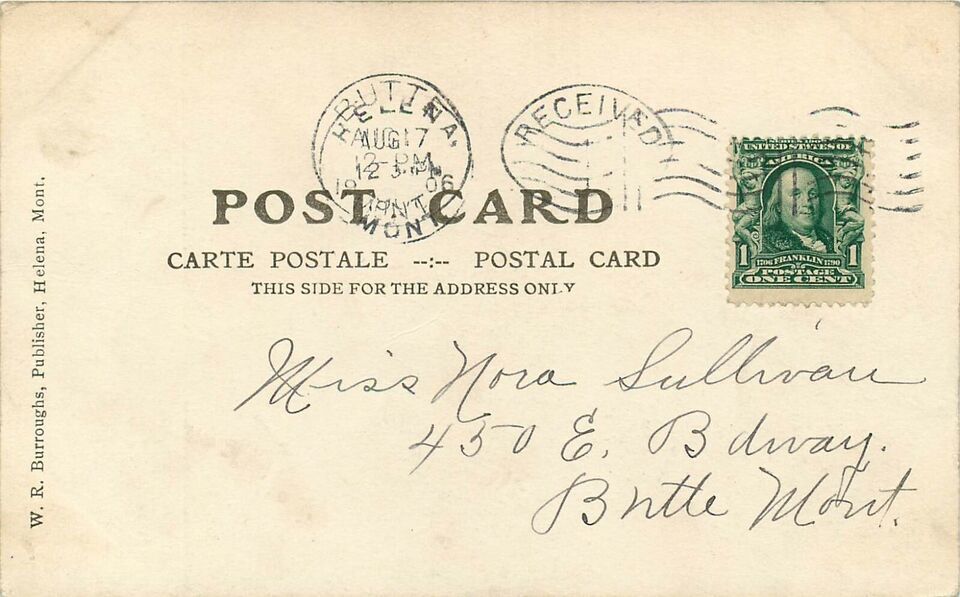 BUTTE
HELENA,
AUG 17
12-PM
1906
MONT.
RECEIVED
UNITED STATES OF
AMERICA
1 1
1706 FRANKLIN 1790
POSTAGE
ONE CENT
POST CARD
CARTE POSTALE --:-- POSTAL CARD
THIS SIDE FOR THE ADDRESS ONLY
Miss Nora Sullivan
450 E. Bdway.
Butte Mont.
W. R. Burroughs, Publisher, Helena, Mont.